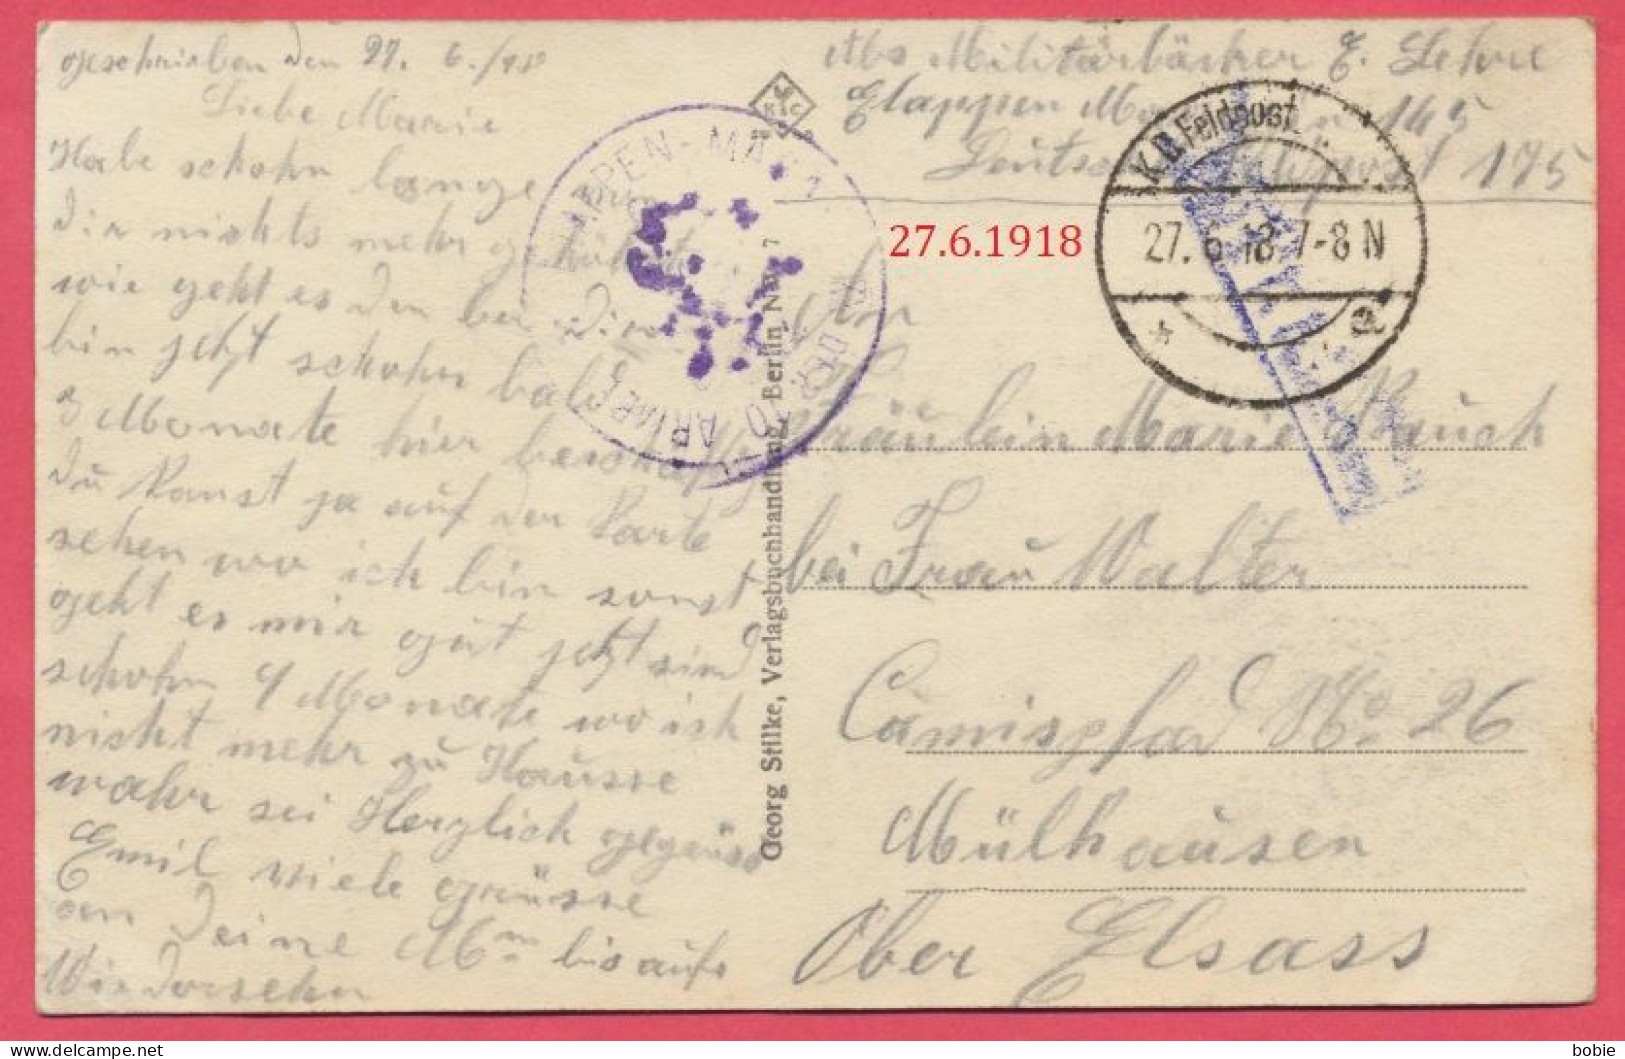 geschrieben den 27. 6./18
Liebe Marie
Habe schohn lange von
Dir nichts mehr gehöhrt
wie geht es den bei Dir
bin jetzt schohn bald
3 Monate hier
Du kanst ja auf der Karte
sehen wo ich bin sonst
geht es mir gut jetzt sind
schohn 9 Monate wo ich
nicht mehr zu Hausse
wahr sei Herzlich gegrüsst
Emil viele grüsse
an Deine bis aufs
Wiedersehn
Georg Stilke, Verlagsbuchhandlung, Berlin NW 7
Abs Militärbäcker E.
Etappen 145
Deutsche Feldpost 175
ETAPPEN-MAG.
DER 10. ARMEE
K.D. Feldpost
27. 6. 18 7-8 N
* a
27.6.1918
An
Fräulein Marie Rauch
bei Frau Walter
Camispfad No. 26
Mülhausen
Ober Elsass
delcampe.net
bobie